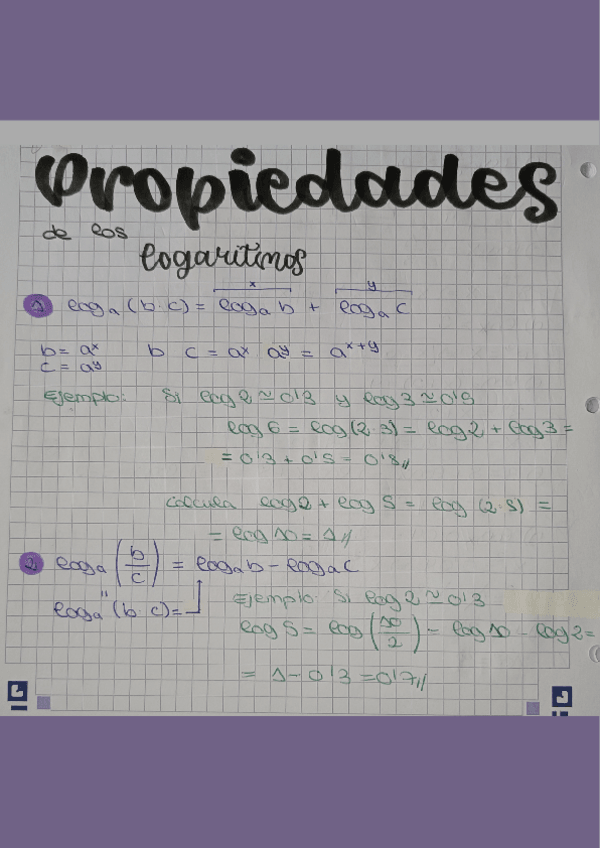 Propiedades
de los
logaritmos
x y
1 logₐ (b·c) = logₐ b + logₐ c
b = aˣ b c = aˣ aʸ = aˣ⁺ʸ
c = aʸ
Ejemplo: Si log 2 ≃ 0'3 y log 3 ≃ 0'5
log 6 = log (2·3) = log 2 + log 3 =
= 0'3 + 0'5 = 0'8//
calcula log 2 + log 5 = log (2·5) =
= log 10 = 1//
2 logₐ (b/c) = logₐ b - logₐ c
"
logₐ (b c) =
Ejemplo: Si log 2 ≃ 0'3
log 5 = log (10/2) = log 10 - log 2 =
= 1 - 0'3 = 0'7//